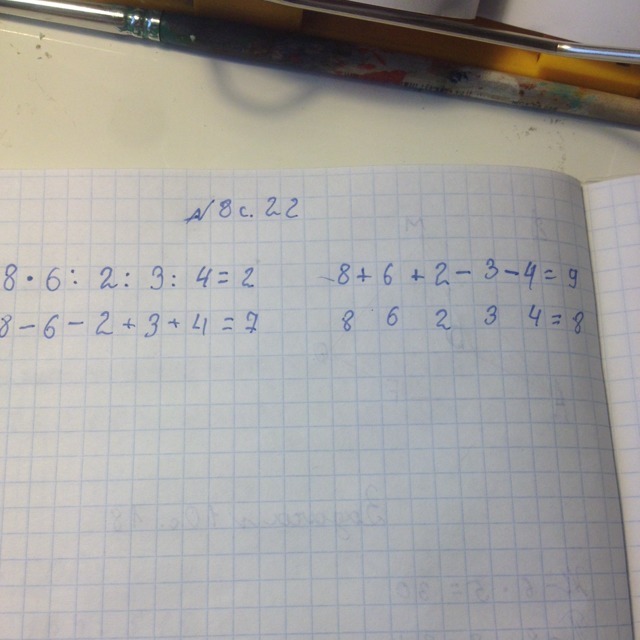 №8 с. 22
8 · 6 : 2 : 3 : 4 = 2
8 + 6 + 2 - 3 - 4 = 9
8 - 6 - 2 + 3 + 4 = 7
8 6 2 3 4 = 8